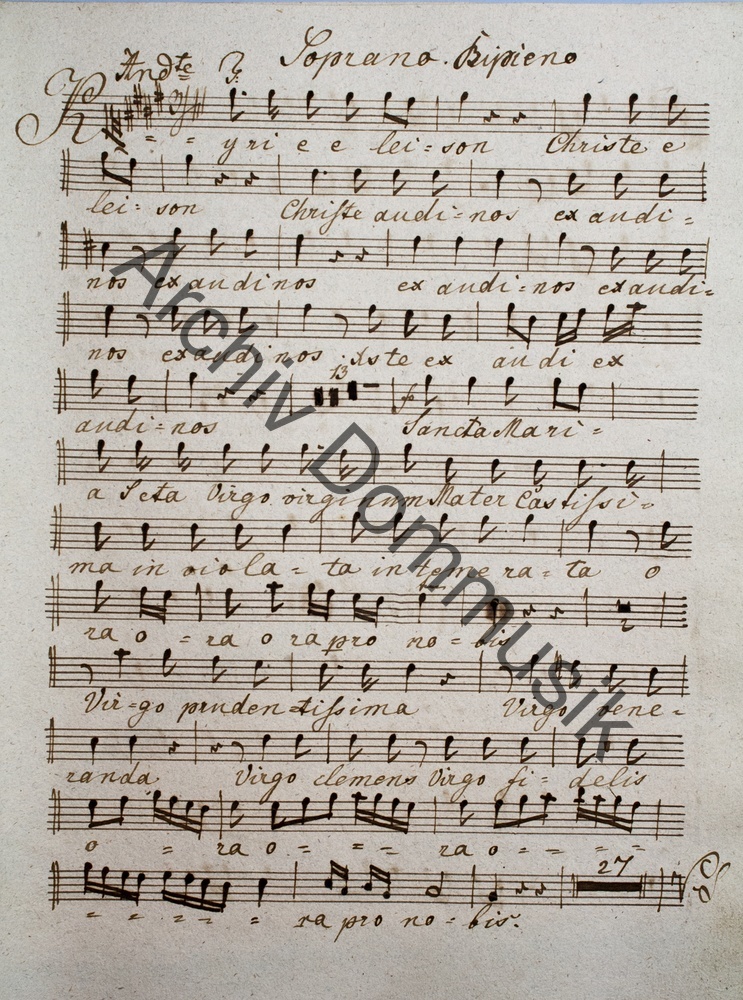 Soprano. Ripieno
Andte
Kyri e e lei=son Christe e
lei=son Christe audi=nos ex audi=
nos ex audi nos ex audi=nos exaudi=
nos exaudi nos iste ex audi ex
13
audi=nos Sancta Mari=
a Scta Virgo virginum Mater Castissi=
ma in viola=ta in teme ra=ta o
ra o =ra o ra pro no=bis
2
Vir=go pruden=tissima Virgo vene=
randa Virgo clemens Virgo fi=delis
o = ra o = = = ra o = = = =
27
= = = = = ra pro no=bis.
Archiv Dommusik